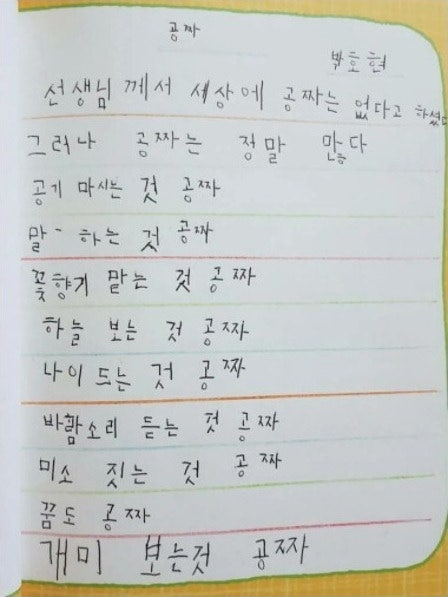 공짜
박호현
선생님 께서 세상에 공짜는 없다고 하셨다
그러나 공짜는 정말 만ㅎ다
공기 마시는 것 공짜
말 하는 것 공짜
꽃향기 맡는 것 공짜
하늘 보는 것 공짜
나이 드는 것 공짜
바람소리 듣는 것 공짜
미소 짓는 것 공짜
꿈도 공짜
개미 보는것 공짜